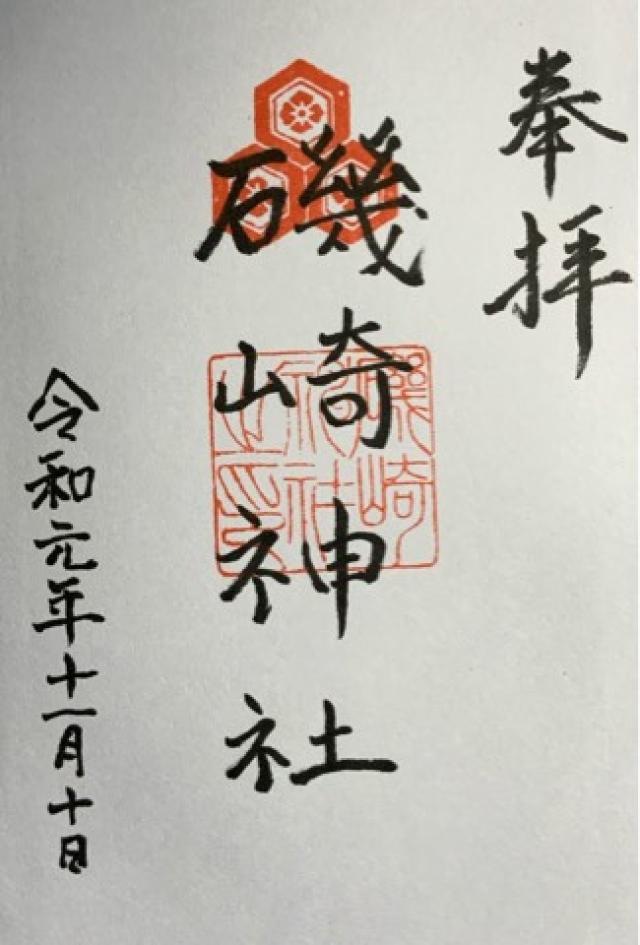 奉拝
磯崎神社
磯崎神社之印
令和元年十一月十日